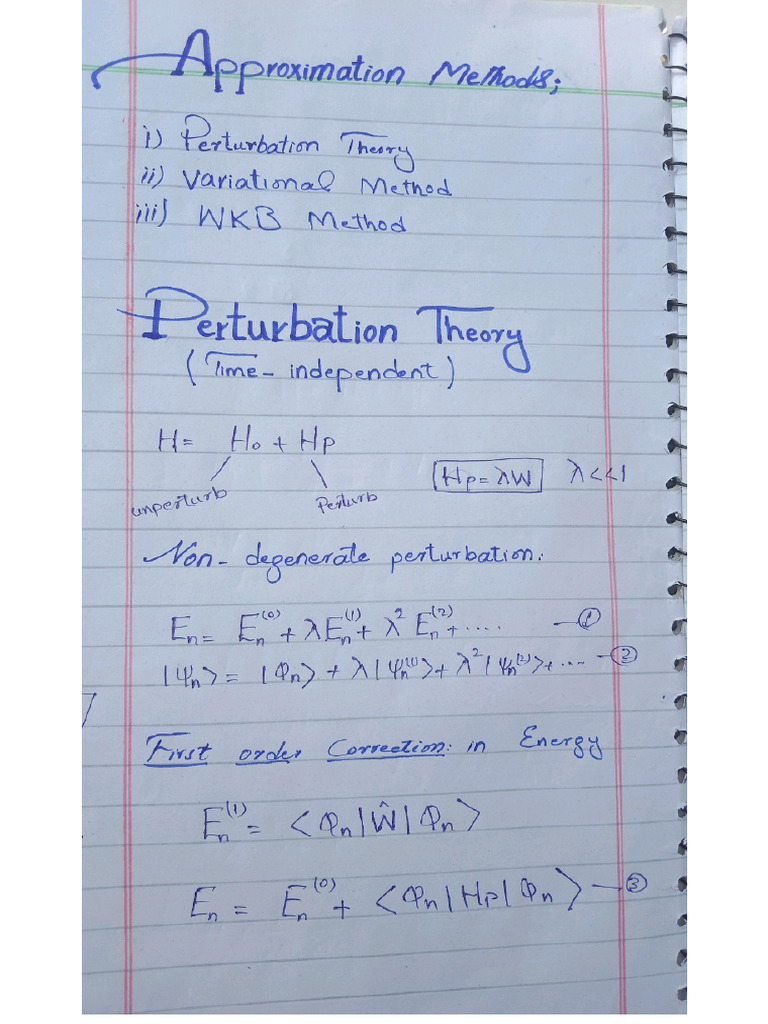 Approximation Methods;
i) Perturbation Theory
ii) Variational Method
iii) WKB Method
Perturbation Theory
(Time-independent)
H= H₀ + Hp
Hp = λW λ<<1
unperturb Perturb
Non-degenerate perturbation:
Eₙ = Eₙ⁽⁰⁾ + λEₙ⁽¹⁾ + λ² Eₙ⁽²⁾ + .... —①
|Ψₙ> = |Φₙ> + λ|Ψₙ⁽¹⁾> + λ²|Ψₙ⁽²⁾> + ... —②
First order Correction: in Energy
Eₙ⁽¹⁾ = <Φₙ|Ŵ|Φₙ>
Eₙ = Eₙ⁽⁰⁾ + <Φₙ|Hp|Φₙ> —③